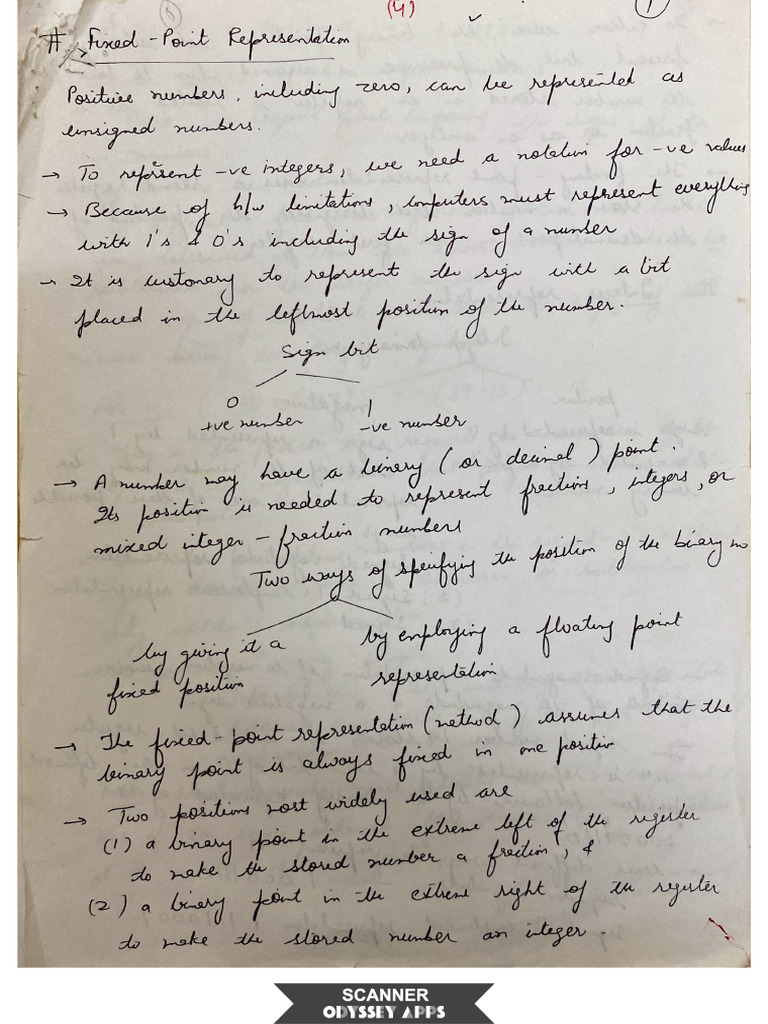 (4)
1
# Fixed-Point Representation
Positive numbers, including zero, can be represented as
unsigned numbers.
→ To represent -ve integers, we need a notation for -ve values
→ Because of h/w limitations, computers must represent everything
with 1's & 0's including the sign of a number
→ It is customary to represent the sign with a bit
placed in the leftmost position of the number.
Sign bit
0 1
+ve number -ve number
→ A number may have a binary (or decimal) point.
Its position is needed to represent fractions, integers, or
mixed integer-fraction numbers
Two ways of specifying the position of the binary no
by giving it a
fixed position
by employing a floating point
representation
→ The fixed-point representation (method) assumes that the
binary point is always fixed in one position
→ Two positions most widely used are
(1) a binary point in the extreme left of the register
to make the stored number a fraction, &
(2) a binary point in the extreme right of the register
to make the stored number an integer.
SCANNER
ODYSSEY APPS